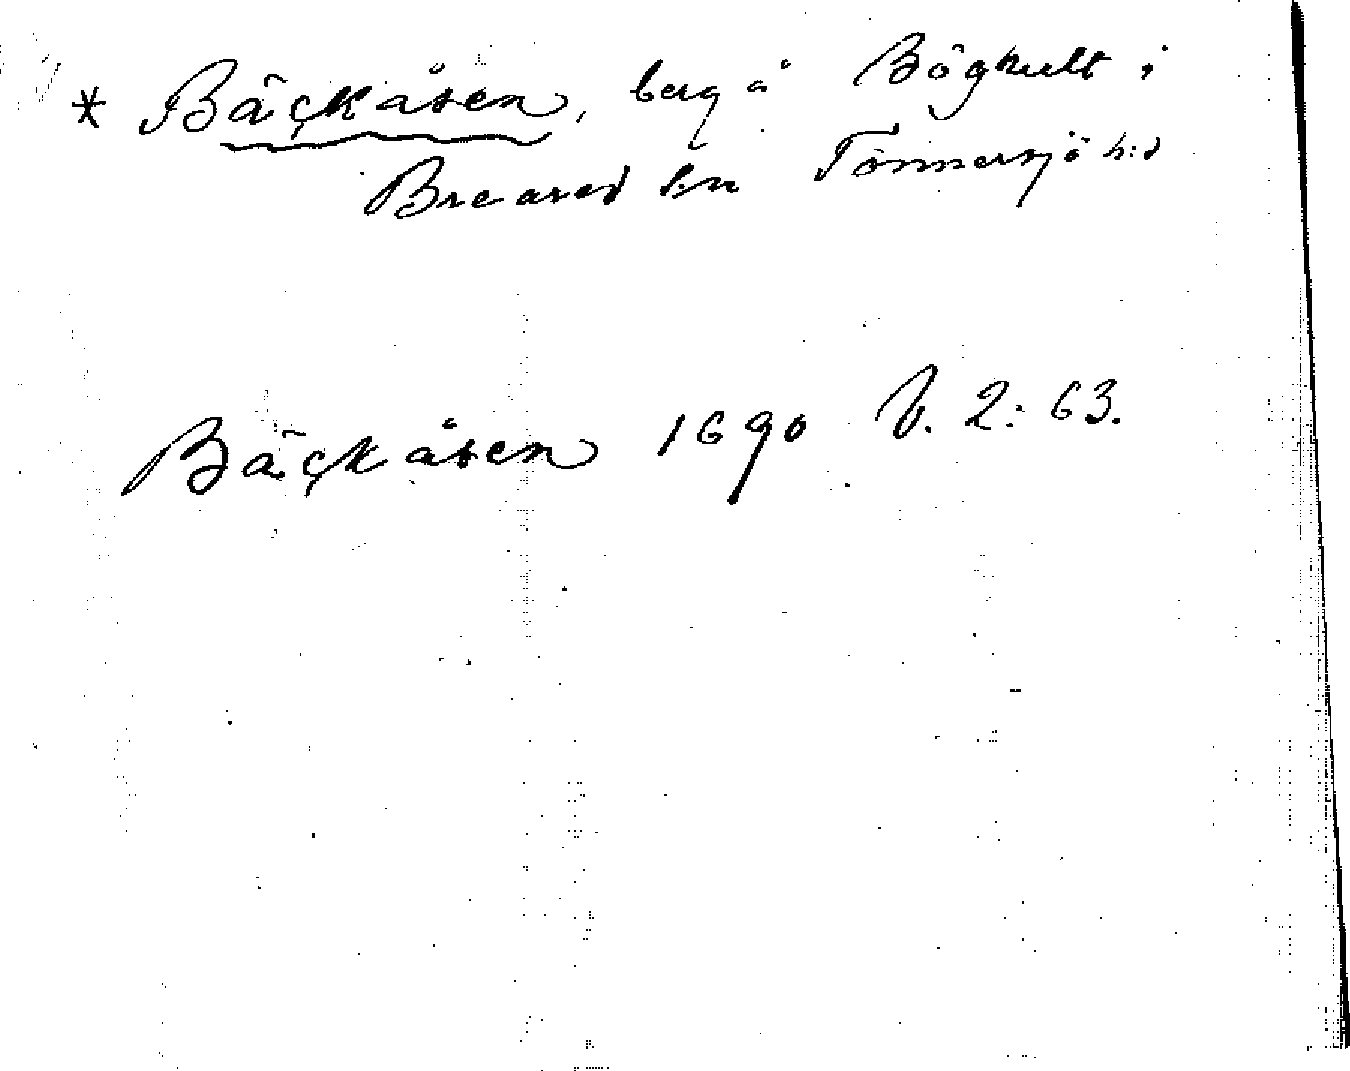 * Bäckåsen, berg å Böghult i
Breared sn Tönnersjö h:d
Bäckåsen 1690 V. 2: 63.